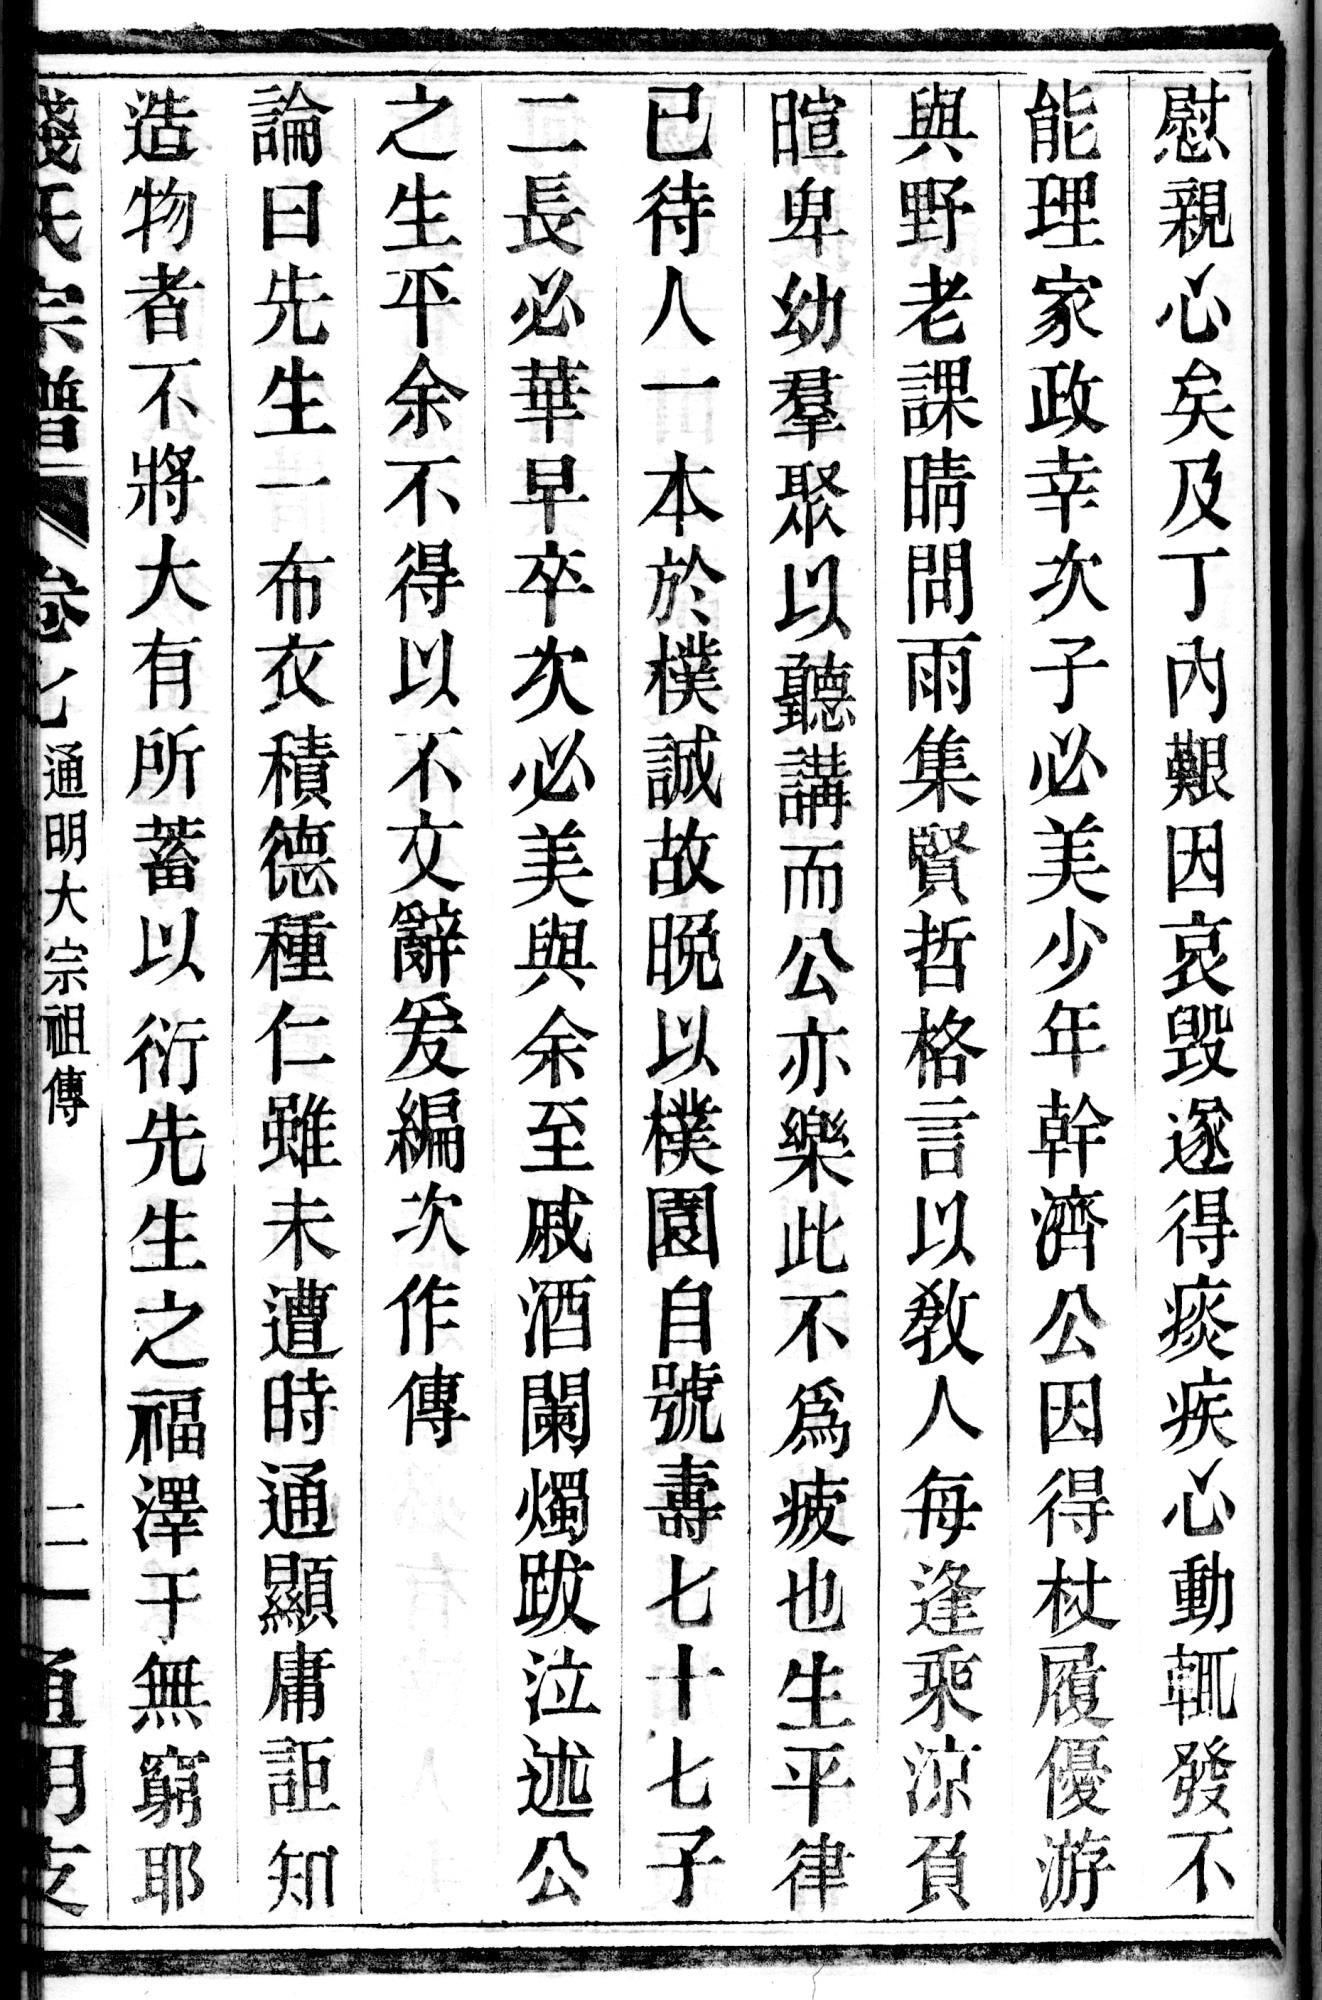 慰親心矣及丁內艱因哀毀遂得痰疾心動輒發不
能理家政幸次子必美少年幹濟公因得杖履優游
與野老課晴問雨集賢哲格言以教人每逢乘涼負
暄卑幼羣聚以聽講而公亦樂此不爲疲也生平律
已待人一本於樸誠故晚以樸園自號壽七十七子
二長必華早卒次必美與余至戚酒闌燭跋泣述公
之生平余不得以不文辭爰編次作傳
論曰先生一布衣積德種仁雖未遭時通顯庸詎知
造物者不將大有所蓄以衍先生之福澤于無窮耶
錢氏宗譜 卷七 通明大宗祖傳 二 通明支